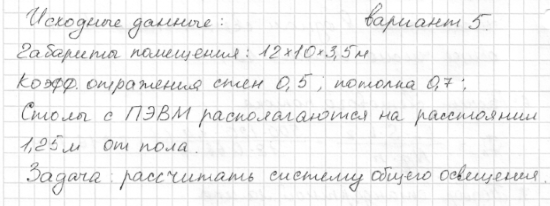 Исходные данные: вариант 5.
Габариты помещения: 12×10×3,5м
Коэфф. отражения стен 0,5; потолка 0,7;
Столы с ПЭВМ располагаются на расстоянии
1,25м от пола.
Задача: рассчитать систему общего освещения.